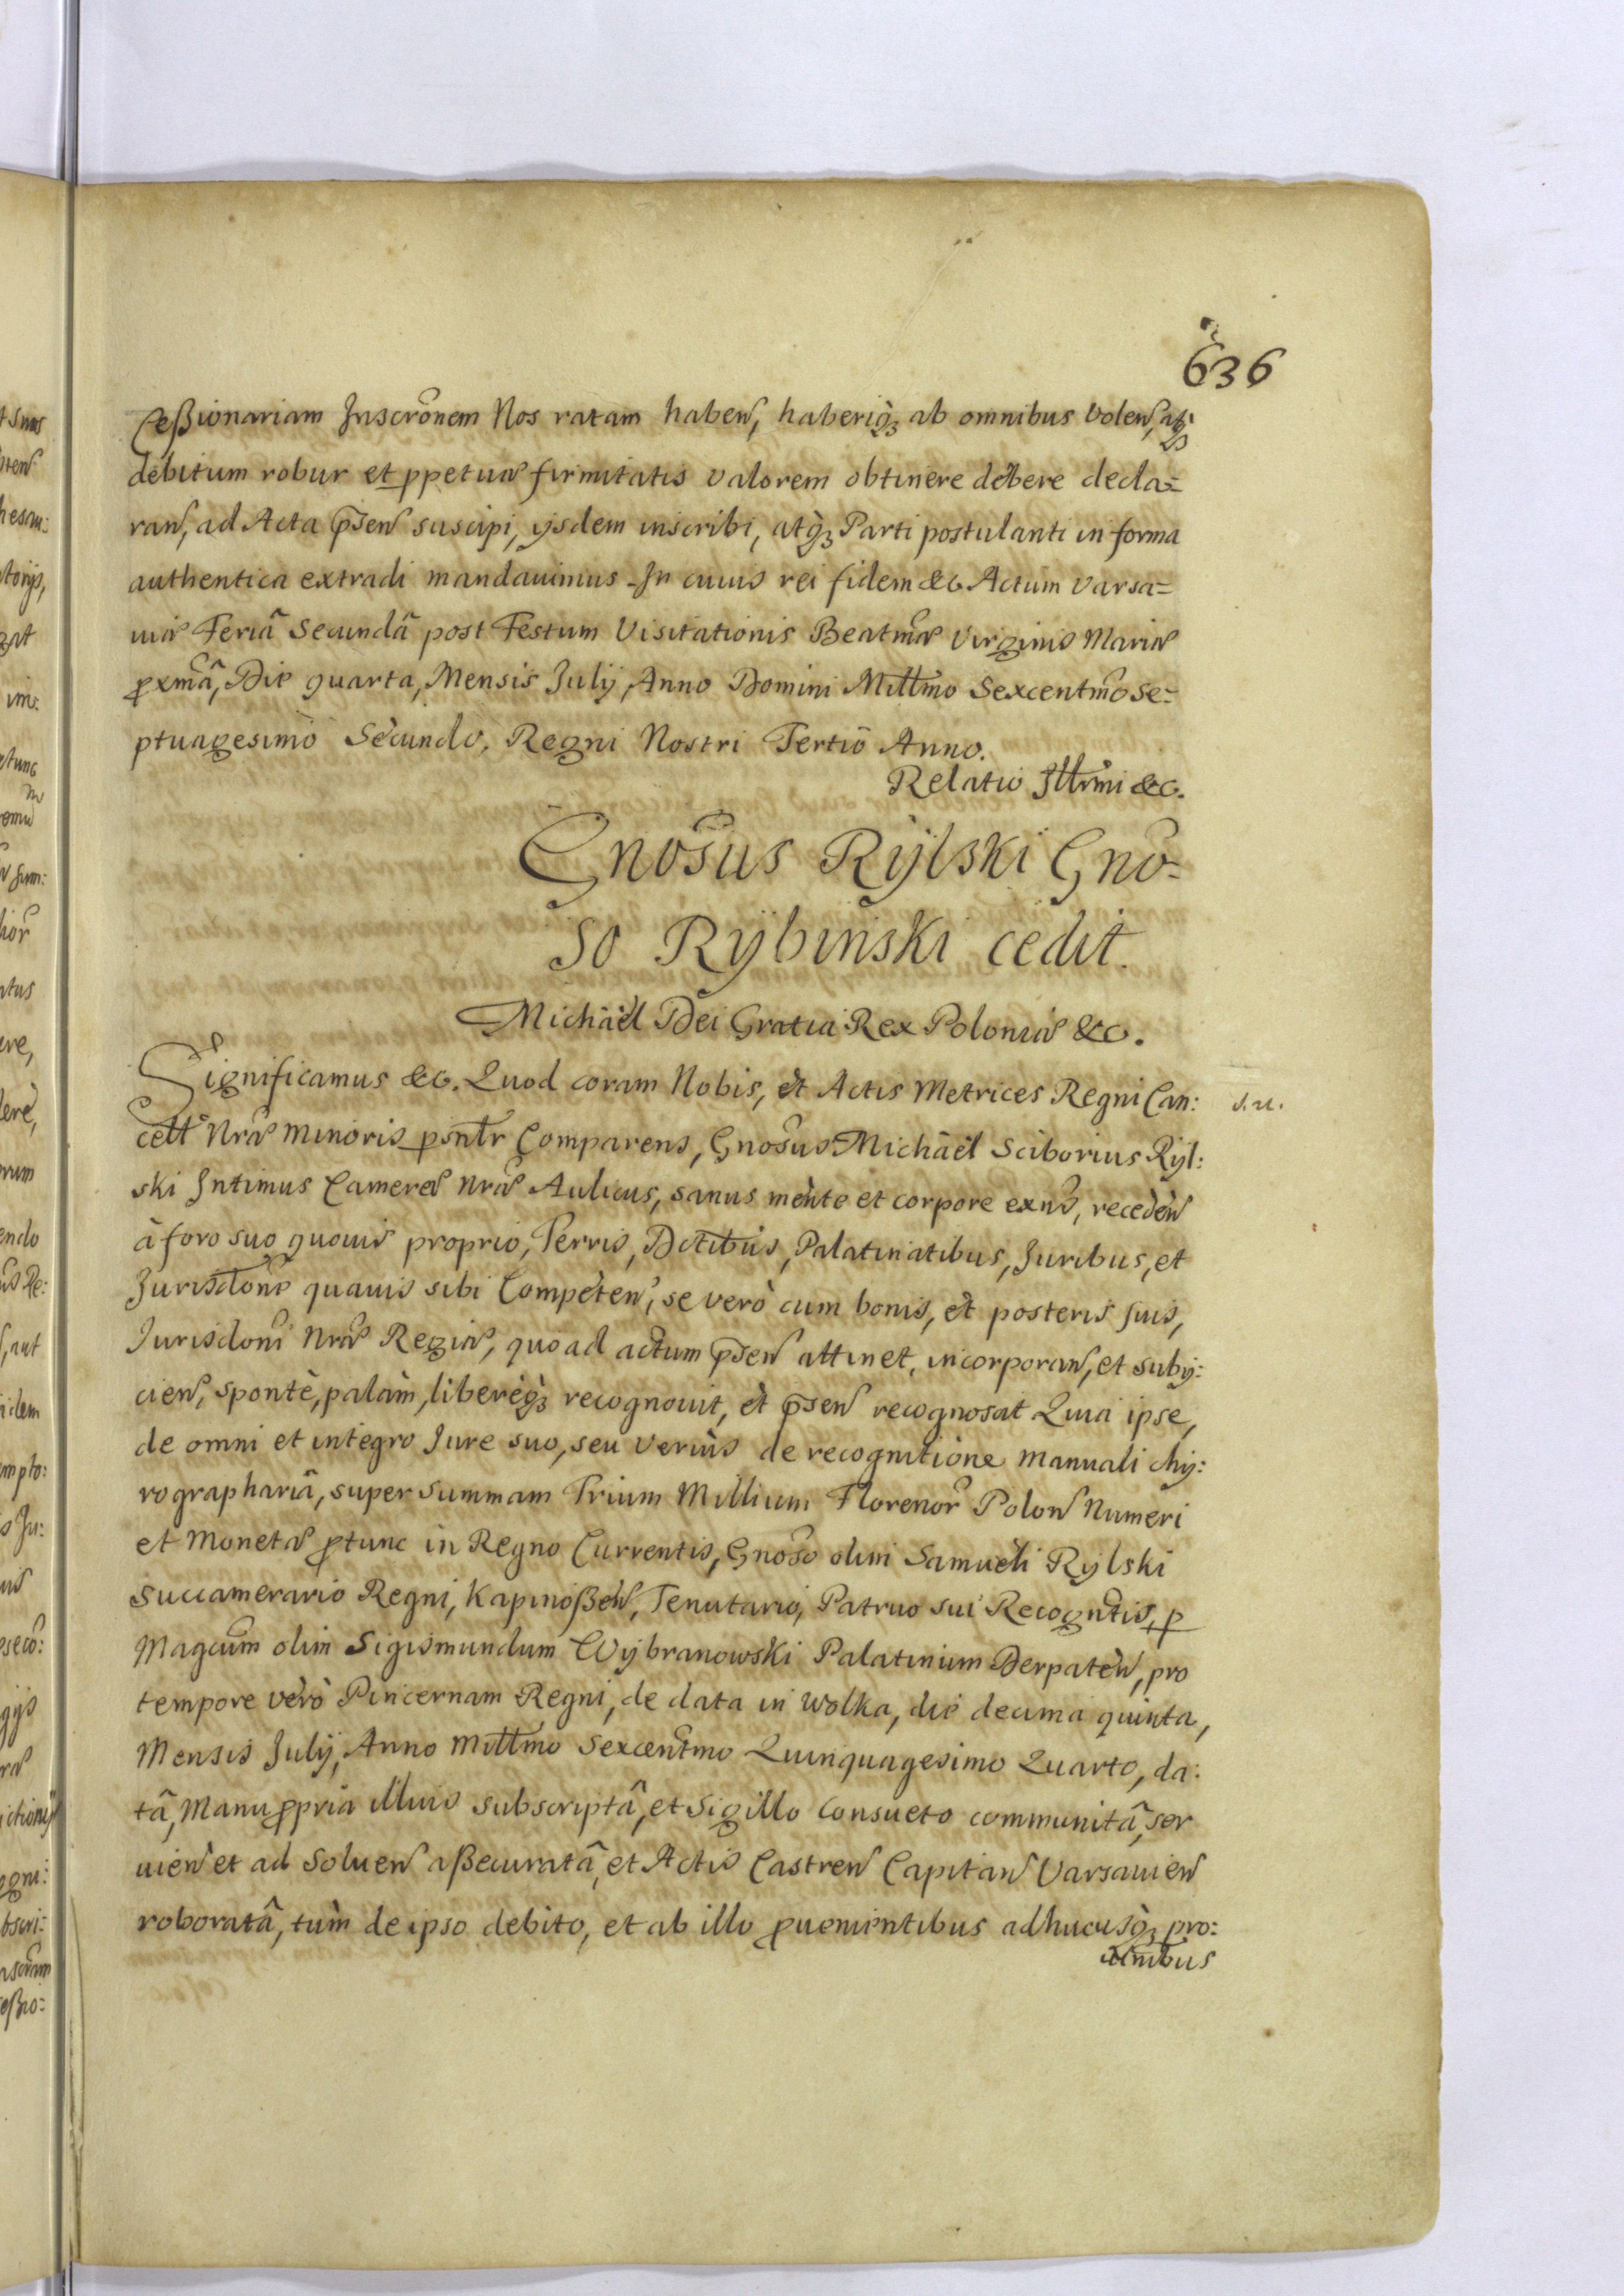 636
Ceßionariam Inscrõnem Nos ratam haben, haberiq̃ ab omnibus volen, atq̃
debitum robur et ppetuæ firmitatis valorem obtinere debere decla=
ran, ad Acta p̃sen suscipi, ysdem inscribi, atq̃ Parti postulanti in forma
authentica extradi mandauimus. In cuius rei fidem &c. Actum Varsa=
uiæ Feriâ Secundâ post Festum Visitationis Beatmæ Virginis Mariæ
proxmâ, Die quarta, Mensis Julij, Anno Domini Millmo Sexcentmo Se=
ptuagesimo Secundo, Regni Nostri Tertio Anno.
Relatio Illrmi &c.
Gnosus Rÿlski Gno=
so Rÿbinski cedit.
Michaël Dei Gratia Rex Poloniæ &c.
Significamus &c. Quod coram Nobis, et Actis Metrices Regni Can:
cell Nræ minoris psntr Comparens, Gnosus Michaël Sciborius Rÿl:
ski Intimus Cameræ Nræ Aulicus, sanus mente et corpore exns, receden
à foro suo quouis proprio, Terris, Dctibus, Palatinatibus, Juribus, et
Jurisdone quauis sibi Competen, se verò cum bonis, et posteris suis,
Jurisdoni Nræ Regiæ, quo ad actum p̃sen attinet, incorporan, et subij:
cien, spontè, palàm, liberèq̃ recognouit, et p̃sen recognoscit Quia ipse,
de omni et integro Jure suo, seu verius de recognitione manuali chy:
rographariâ, super summam Trium Millium Florenor Polon Numeri
et Monetæ protunc in Regno Currentis, Gnoso olim Samueli Rÿlski
Succamerario Regni, Kapinoßen, Tenutario, Patruo sui Recogntis, p
Magcum olim Sigismundum Wÿbranowski Palatinum Derpaten, pro
tempore verò Pincernam Regni, de data in Wolka, die decima quinta,
Mensis Julij, Anno Millmo Sexcentmo Quinquagesimo Quarto, da:
tâ, Manu propria illius subscriptâ, et Sigillo consueto communitâ, ser
uien et ad soluen aßecuratâ, et Actis Castren Capitan Varsauien
roboratâ, tùm de ipso debito, et ab illo prouenientibus adhucusq̃ pro: